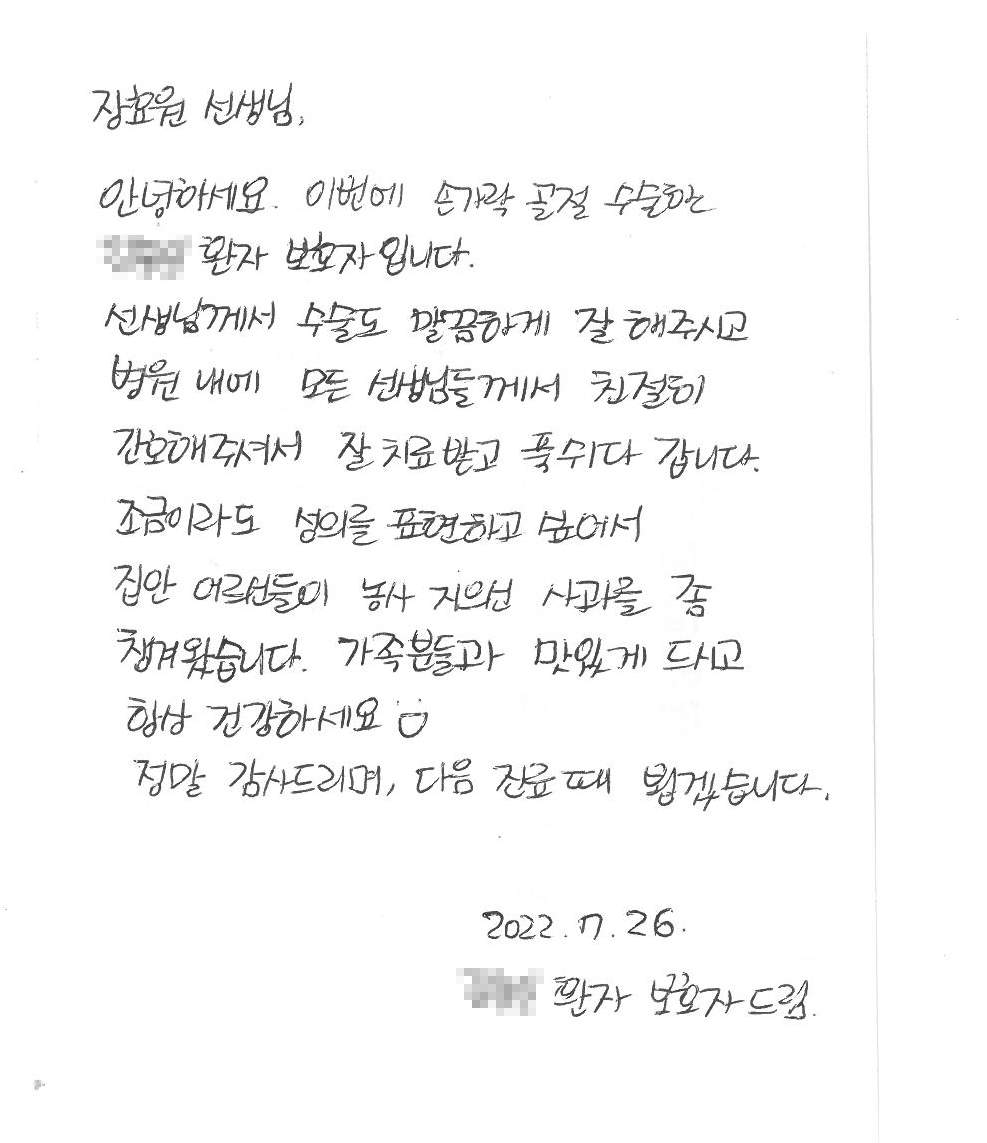 장효원 선생님,
안녕하세요. 이번에 손가락 골절 수술하는
환자 보호자입니다.
선생님께서 수술도 말끔하게 잘 해주시고
병원 내에 모든 선생님들께서 친절히
간호해주셔서 잘 치료받고 푹쉬다 갑니다.
조금이라도 성의를 표현하고 싶어서
집안 어르신들이 농사 지으신 사과를 좀
챙겨왔습니다. 가족분들과 맛있게 드시고
항상 건강하세요
정말 감사드리며, 다음 진료 때 뵙겠습니다.
2022. 7. 26.
환자 보호자 드림.